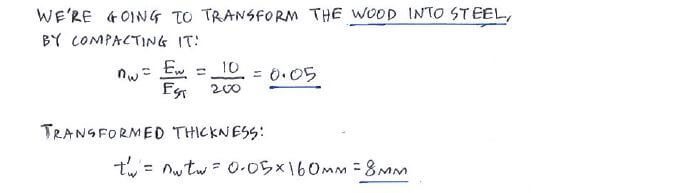 WE'RE GOING TO TRANSFORM THE WOOD INTO STEEL,
BY COMPACTING IT:
n_w = E_w / E_ST = 10 / 200 = 0.05
TRANSFORMED THICKNESS:
t'_w = n_w t_w = 0.05 × 160MM = 8MM